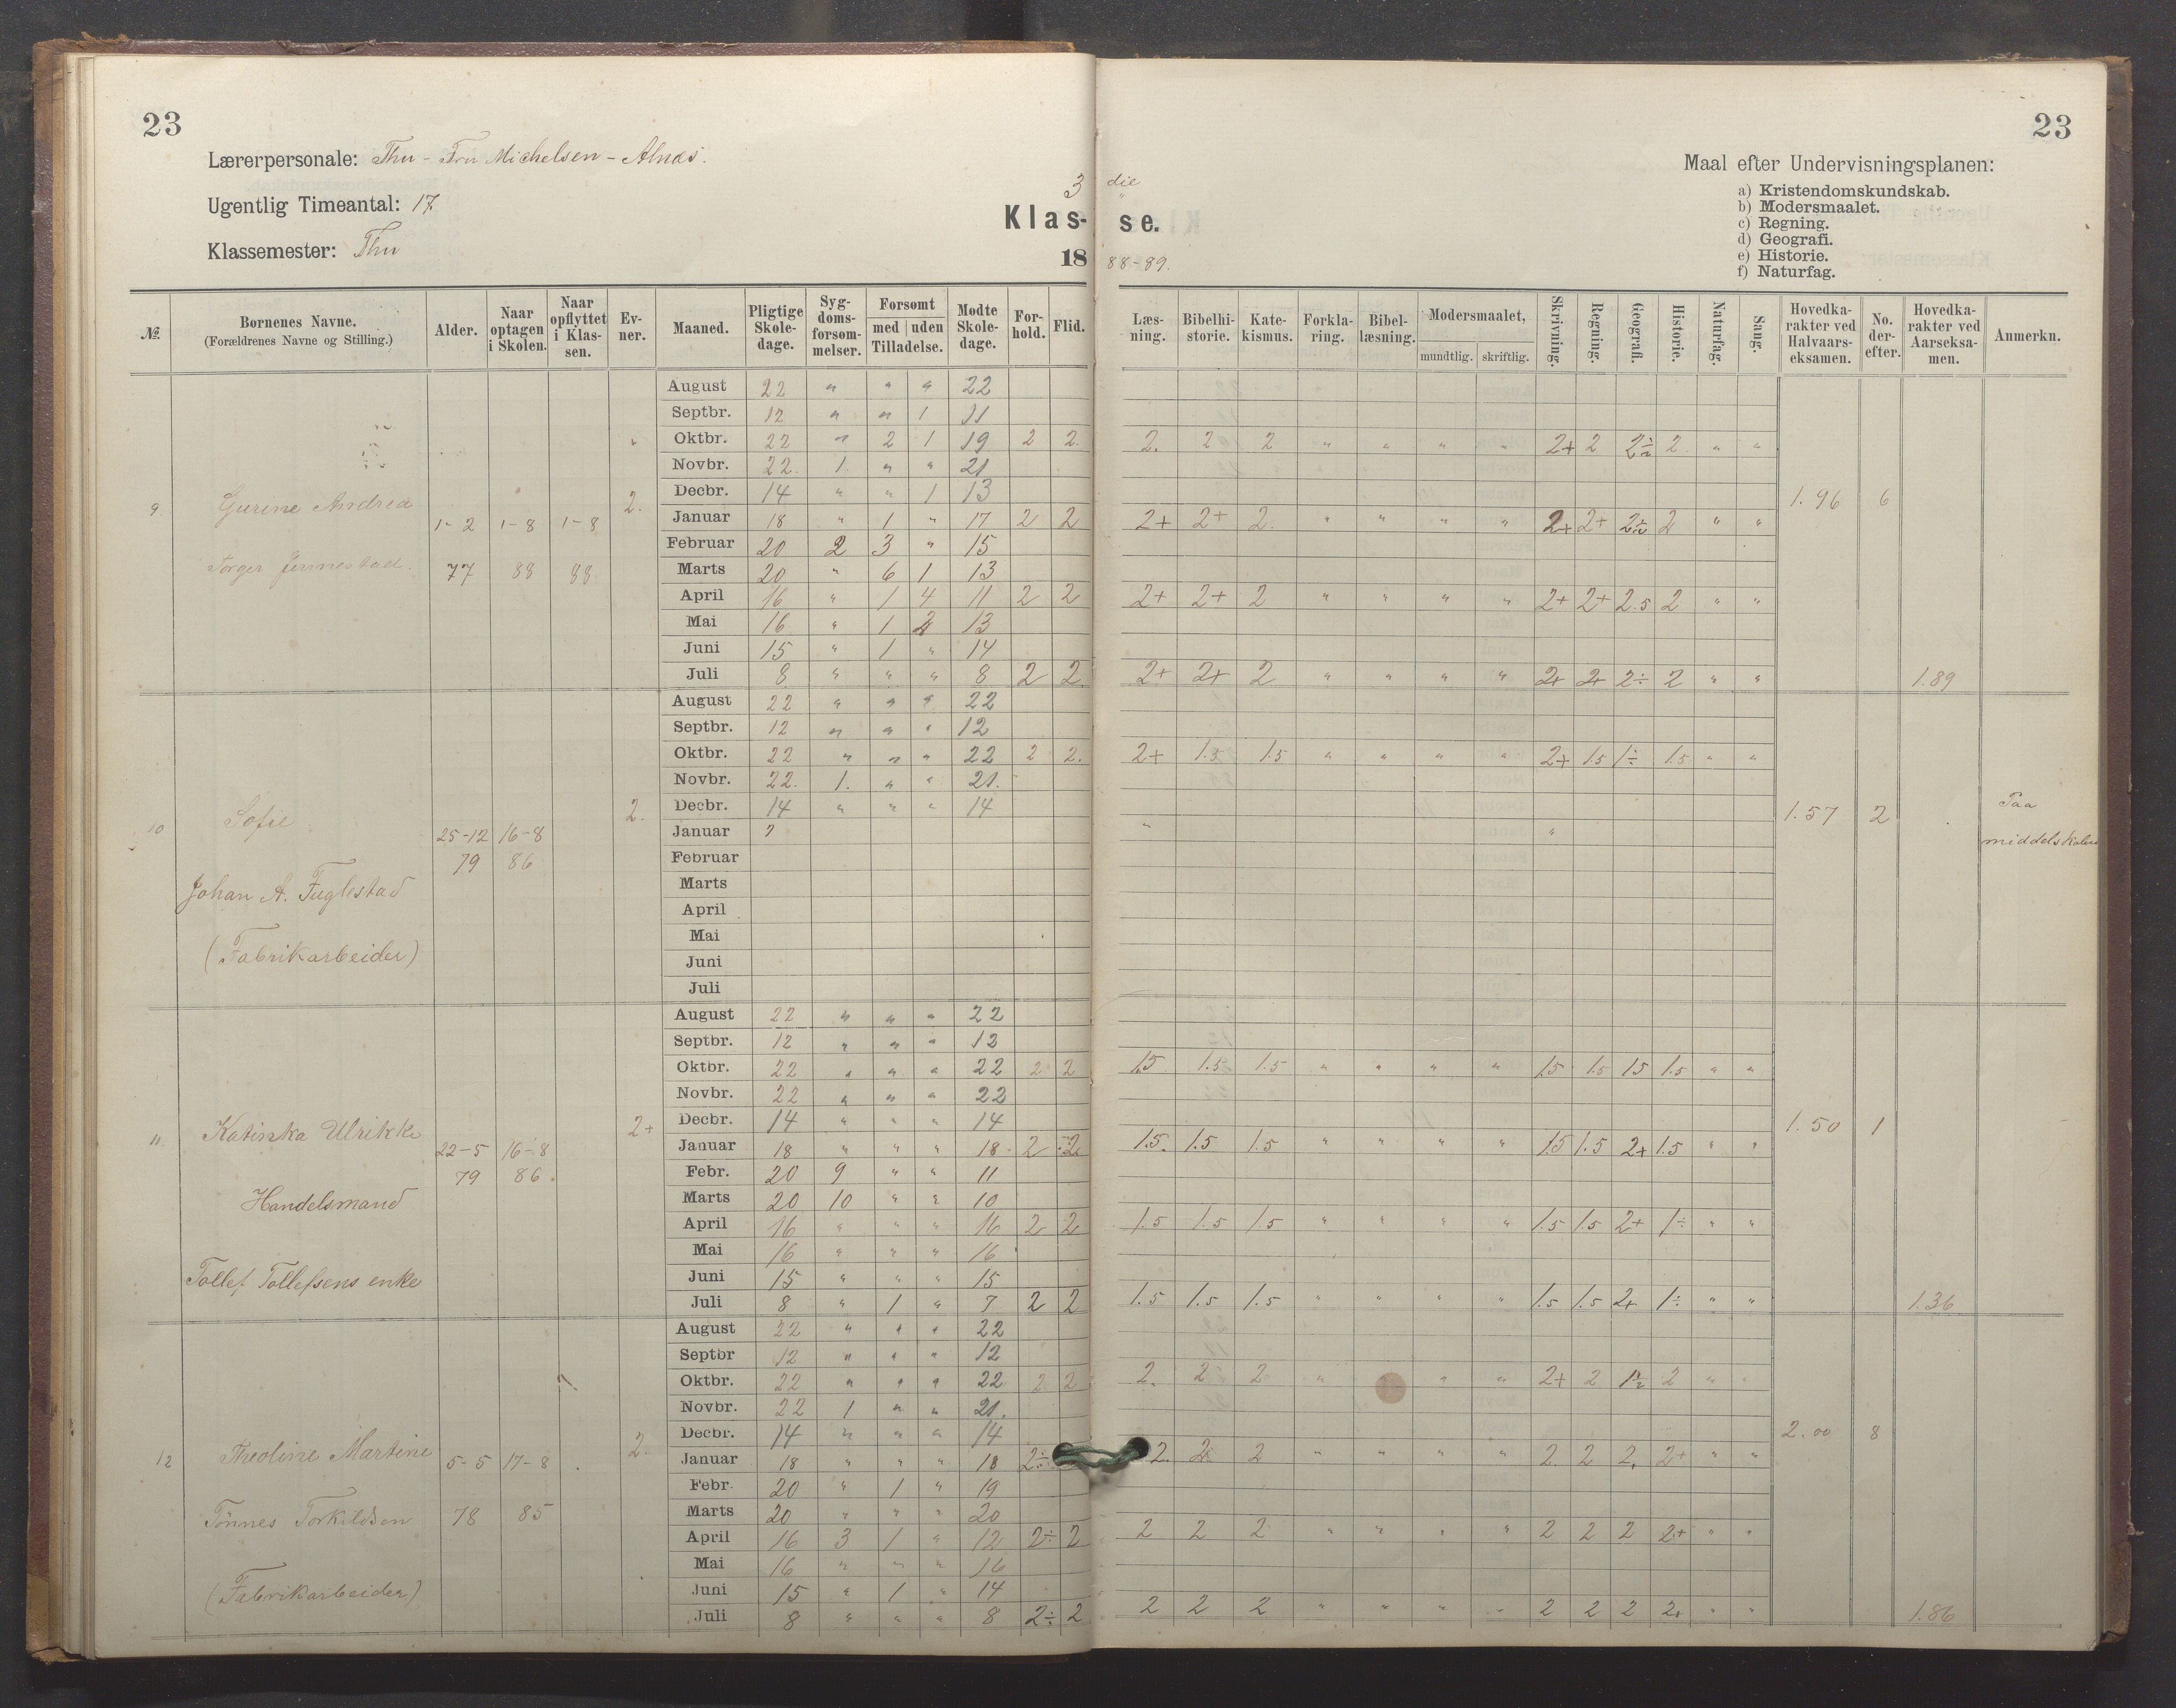 23
23
Lærerpersonale: Thu - Fru Michelsen - Alnæs.
Ugentlig Timeantal: 17.
Klassemester: Thu
3 die
Klas- se.
18 88-89.
Maal efter Undervisningsplanen:
a) Kristendomskundskab.
b) Modersmaalet.
c) Regning.
d) Geografi.
e) Historie.
f) Naturfag.
№ Børnenes Navne. (Forældrenes Navne og Stilling.) Alder. Naar optagen i Skolen. Naar opflyttet i Klassen. Evner. Maaned. Pligtige Skoledage. Sygdomsforsømmelser. Forsømt med uden Tilladelse. Mødte Skoledage. Forhold. Flid. Læsning. Bibelhistorie. Katekismus. Forklaring. Bibellæsning. Modersmaalet, mundtlig. skriftlig. Skrivning. Regning. Geografi. Historie. Naturfag. Sang. Hovedkarakter ved Halvaarseksamen. No. derefter. Hovedkarakter ved Aarseksamen. Anmerkn.
9. Gurine Andrea 1-2 77 1-8 88 1-8 88 2. 1.96 6
Torger Jinnestad.
August 22 " " " 22
Septbr. 12 " " 1 11
Oktbr. 22 " 2 1 19 2 2. 2. 2 2 " " " " 2+ 2 2÷ 2 " "
Novbr. 22. 1. " " 21
Decbr. 14 " " 1 13
Januar 18 " 1 " 17 2 2 2+ 2+ 2. " " " " 2+ 2+ 2÷ 2 " "
Februar 20 2 3 " 15
Marts 20 " 6 1 13
April 16 " 1 4 11 2 2 2+ 2+ 2 " " " " 2+ 2+ 2.5 2 " "
Mai 16 " 1 2 13
Juni 15 " 1 " 14
Juli 8 " " " 8 2 2 2+ 2+ 2 " " " " 2+ 2+ 2÷ 2 " " 1.89
10 Sofie 25-12 79 16-8 86 2. 1.57 2 Paa middelskolen
Johan A. Fuglestad
(Fabrikarbeider)
August 22 " " " 22
Septbr. 12 " " " 12
Oktbr. 22 " " " 22 2 2. 2+ 1.5 1.5 " " " " 2+ 1.5 1÷ 1.5 " "
Novbr. 22. 1. " " 21.
Decbr. 14 " " " 14
Januar " "
Februar
Marts
April
Mai
Juni
Juli
11. Katinka Ulrikke 22-5 79 16-8 86. 2+ 1.50 1
Handelsmand
Tollef Tollefsens enke
August 22 " " " 22
Septbr. 12 " " " 12
Oktbr. 22 " " " 22 2 2 1.5 1.5 1.5 " " " " 1.5 1.5 1.5 1.5 " "
Novbr. 22 " " " 22
Decbr. 14 " " " 14
Januar 18 " " " 18 2 2 1.5. 1.5 1.5 " " " " 1.5 1.5 2+ 1.5 " "
Febr. 20 9 " " 11
Marts 20 10 " " 10
April 16 " " " 16 2 2 1.5 1.5 1.5 " " " " 1.5 1.5 2+ 1÷ " "
Mai 16 " " " 16
Juni 15 " " " 15
Juli 8 " 1 " 7 2 2 1.5 1.5 1.5 " " " " 1.5 1.5 2+ 1÷ " " 1.36
12 Theoline Martine 5-5 78 17-8 85 2. 2.00 8
Tönnes Torkildsen
(Fabrikarbeider)
August 22 " " " 22
Septbr 12 " " " 12
Oktbr. 22 " " " 22 2 2 2. 2 2 " " " " 2+ 2 2 " "
Novbr. 22 1 " " 21.
Decbr. 14 " " " 14
Januar 18 " " " 18 2÷ 2. 2 2 " " " " 2. 2 2. 2+ " "
Febr. 20 " 1 " 19
Marts 20 " " " 20
April 16 3 1 " 12 2÷ 2 2 2 2 " " " " 2 2 2 2+ " "
Mai 16 " " " 16
Juni 15 " 1 " 14
Juli 8 " " " 8 2÷ 2 2 2 2 " " " " 2 2 2 2+ " " 1.86